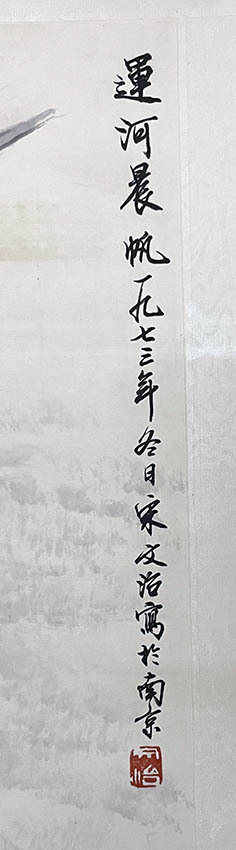 運河晨帆一九七三年冬日宋文治寫於南京
文治